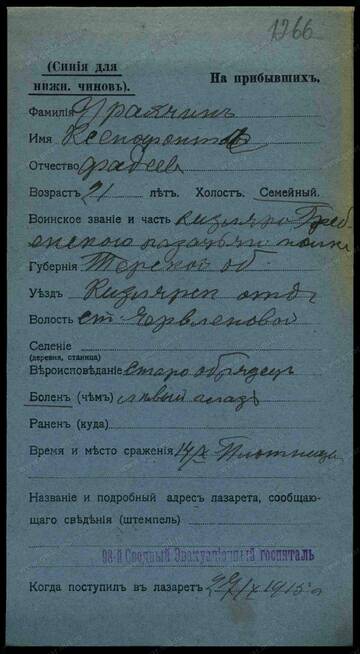 1266
(Синія для
нижн. чиновъ).
На прибывшихъ.
Фамилія Фролчинъ
Имя Ксенофонтъ
Отчество Фадеев
Возрастъ 21 лѣтъ. Холостъ. Семейный.
Воинское званіе и часть Кизляро Греб-
енского казачьяго полка
Губернія Терской об.
Уѣздъ Кизлярск отд.
Волость ст. Червленовой
Селеніе
(деревня, станица)
Вѣроисповѣданіе старообрядецъ
Боленъ (чѣмъ) лѣвый глазъ
Раненъ (куда)
Время и мѣсто сраженія 14/IX
Названіе и подробный адресъ лазарета, сообщаю-
щаго свѣдѣнія (штемпель)
98-й Сводный Эвакуаціонный госпиталь
Когда поступилъ въ лазаретъ 29/IX 1915 г